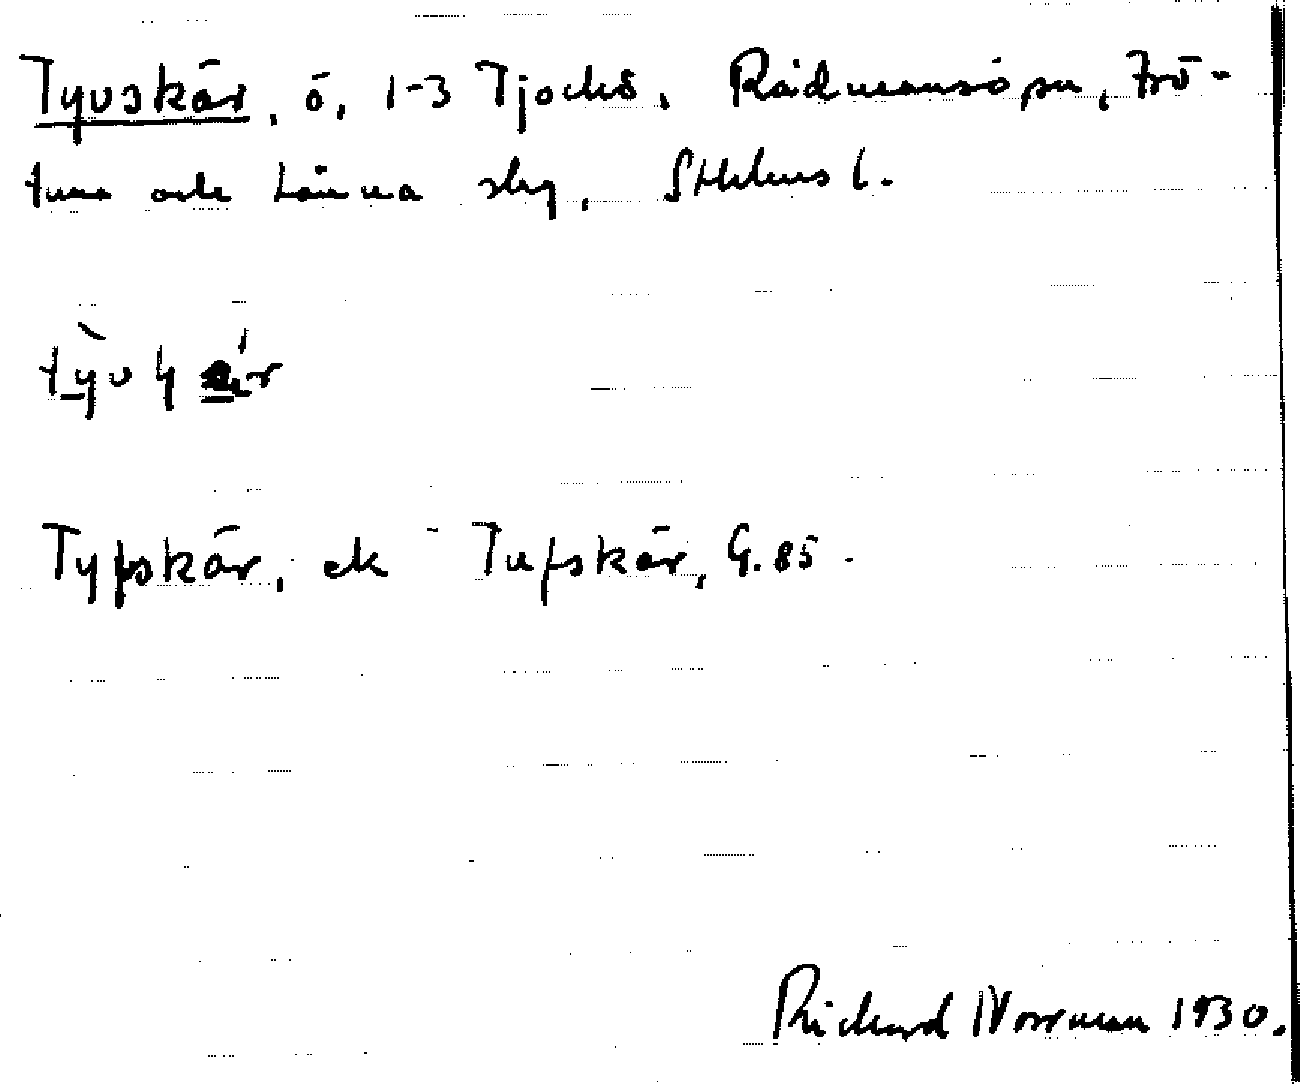 Tyvskär, ö, 1-3 Tjockö, Rådmansö sn, Frö-
tuna och Länna skg, Sthlms l.
Typskär, ek Tufskär, G. 85.
Rickard Norrman 1930.